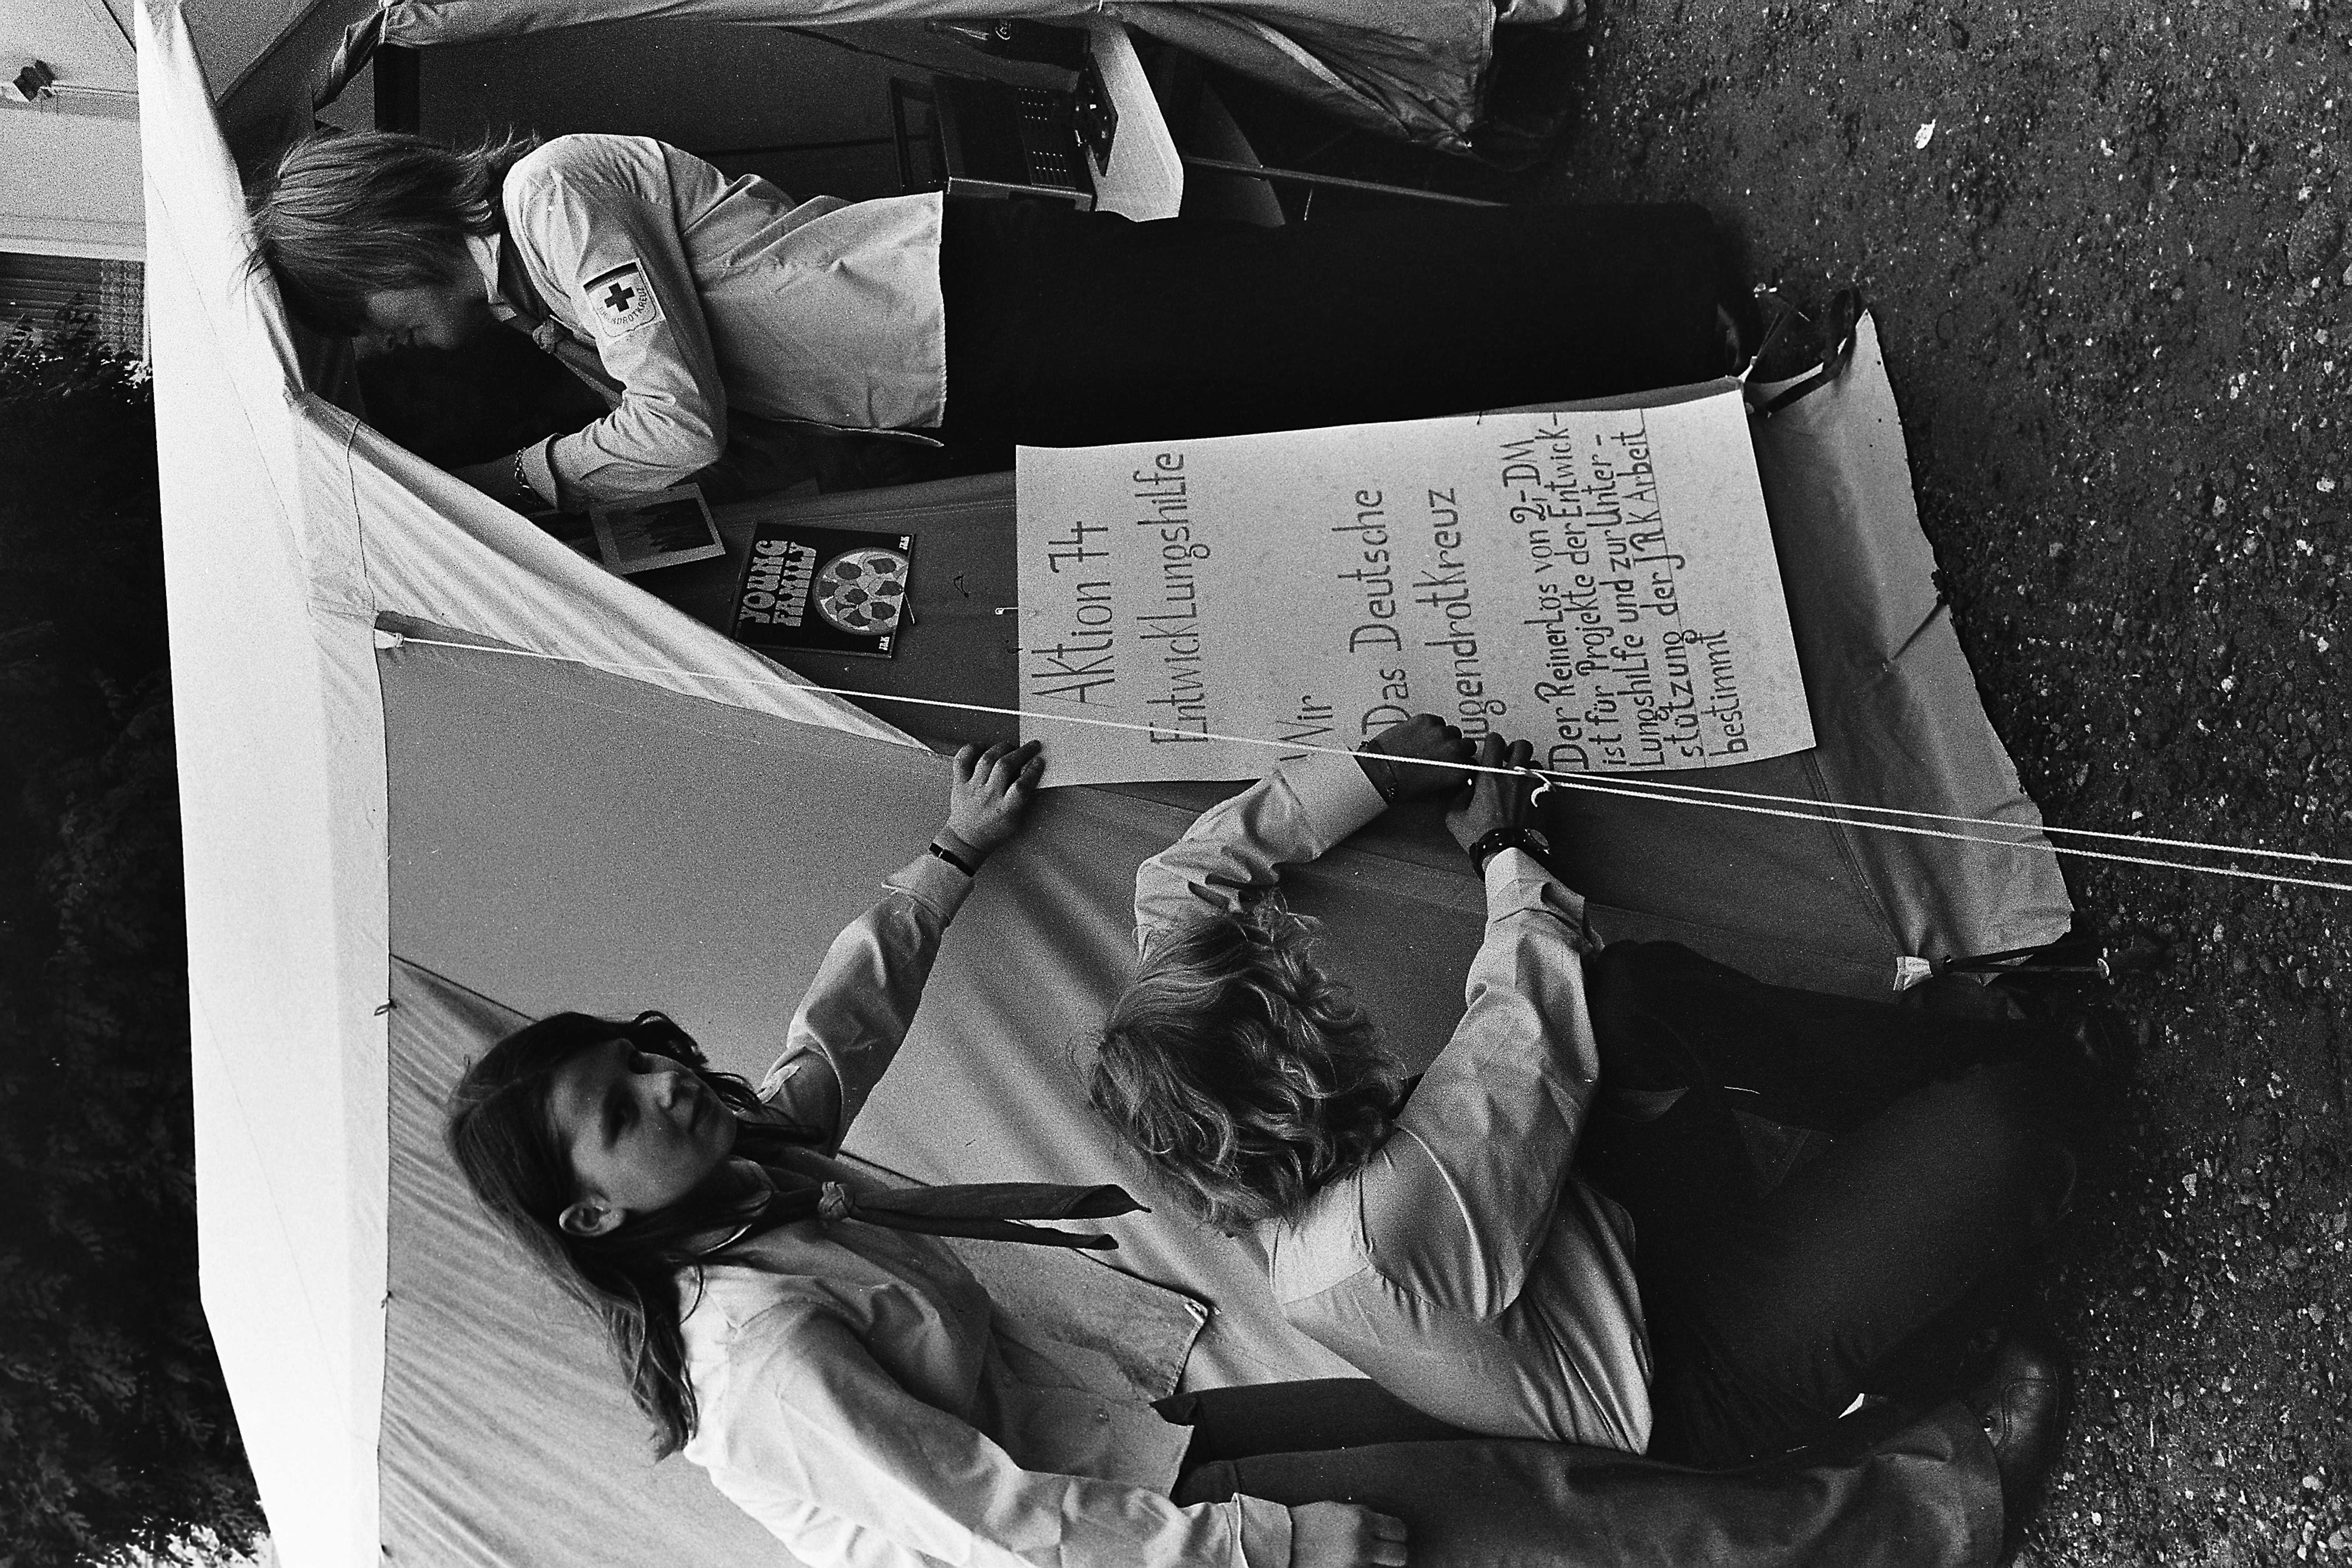 Aktion 74
Entwicklungshilfe
Wir
Das Deutsche
Jugendrotkreuz
Der Reinerlös von 2,-DM
ist für Projekte der Entwick-
lungshilfe und zur Unter-
stützung der JRK Arbeit
bestimmt
YOUNG
FAMILY
JRK
JRK
JUGENDROTKREUZ